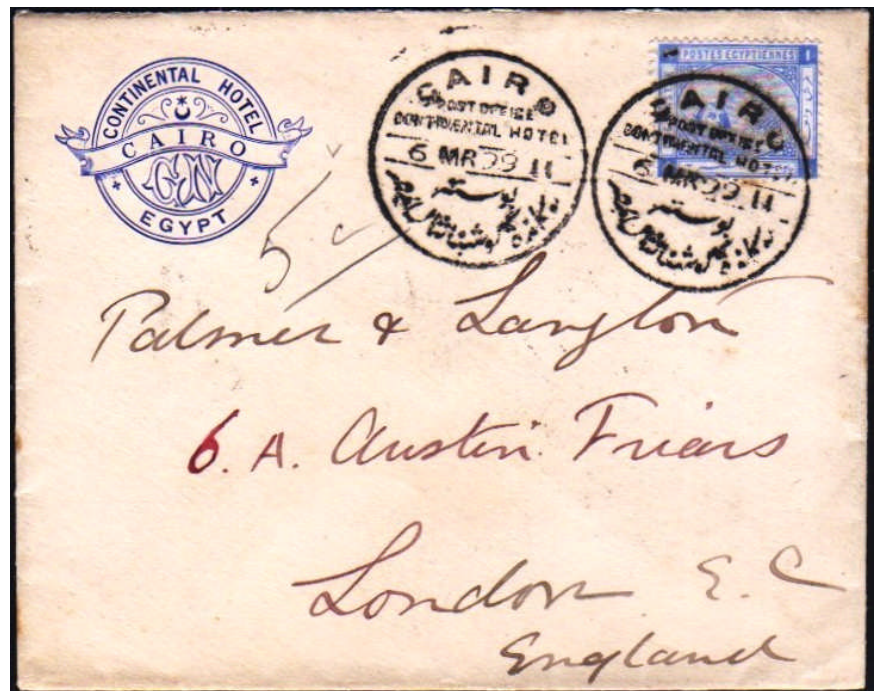 CONTINENTAL HOTEL
CAIRO
GN
EGYPT
CAIRO
POST OFFICE
CONTINENTAL HOTEL
6 MR 99 11
بوسته
POSTES EGYPTIENNES
1
CAIRO
POST OFFICE
CONTINENTAL HOTEL
6 MR 99 11
بوسته
5
Palmer & Langton
6. A. Austin Friars
London E. C
England